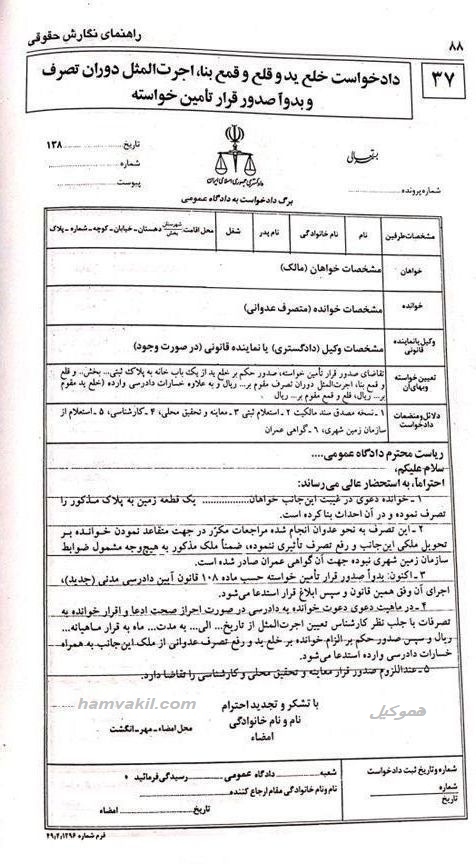 ۸۸
راهنمای نگارش حقوقی
۳۷
دادخواست خلع ید و قلع و قمع بنا، اجرت‌المثل دوران تصرف
و بدواً صدور قرار تأمین خواسته
بسمه تعالی
تاریخ.......... ۱۳۸
شماره..........
پیوست..........
دادگستری جمهوری اسلامی ایران
شماره پرونده..........
برگ دادخواست به دادگاه عمومی
مشخصات طرفین
نام
نام خانوادگی
نام پدر
شغل
محل اقامت شهرستان بخش دهستان - خیابان - کوچه - شماره - پلاک
خواهان
مشخصات خواهان (مالک)
خوانده
مشخصات خوانده (متصرف عدوانی)
وکیل یا نماینده قانونی
مشخصات وکیل (دادگستری) یا نماینده قانونی (در صورت وجود)
تعیین خواسته و بهای آن
تقاضای صدور قرار تأمین خواسته، صدور حکم بر خلع ید از یک باب خانه به پلاک ثبتی... بخش... و قلع
و قمع بنا، اجرت‌المثل دوران تصرف مقوم بر... ریال و به علاوه خسارات دادرسی وارده (خلع ید مقوم
بر... ریال، قلع و قمع مقوم بر... ریال)
دلائل و منضمات دادخواست
۱- نسخه مصدق سند مالکیت ۲- استعلام ثبتی ۳- معاینه و تحقیق محلی، ۴- کارشناسی، ۵- استعلام از
سازمان زمین شهری، ۶- گواهی عمران
ریاست محترم دادگاه عمومی....
سلام علیکم،
احتراماً، به استحضار عالی می‌رساند:
۱- خوانده دعوی در غیبت این‌جانب خواهان.................. یک قطعه زمین به پلاک مذکور را
تصرف نموده و در آن احداث بنا کرده است.
۲- این تصرف به نحو عدوان انجام شده مراجعات مکرّر در جهت متقاعد نمودن خوانده بر
تحویل ملکی این‌جانب و رفع تصرف تأثیری ننموده، ضمناً ملک مذکور به هیچ‌وجه مشمول ضوابط
سازمان زمین شهری نبوده جهت آن گواهی عمران صادر شده است.
۳- اکنون: بدواً صدور قرار تأمین خواسته حسب ماده ۱۰۸ قانون آیین دادرسی مدنی (جدید)،
اجرای آن وفق همین قانون و سپس ابلاغ قرار استدعا می‌شود.
۴- در ماهیت دعوی دعوت خوانده به دادرسی در صورت احراز صحت ادعا و اقرار خوانده به
تصرفات با جلب نظر کارشناسی تعیین اجرت‌المثل از تاریخ... الی... به مدت... ماه به قرار ماهیانه...
ریال و سپس صدور حکم بر الزام خوانده بر خلع ید و رفع تصرف عدوانی از ملک این‌جانب به همراه
خسارات دادرسی وارده استدعا می‌شود.
۵- عنداللزوم صدور قرار معاینه و تحقیق محلی و کارشناسی را تقاضا دارد.
با تشکر و تجدید احترام
نام و نام خانوادگی
امضاء
محل امضاء - مهر - انگشت
hamvakil.com
هموکیل
شماره و تاریخ ثبت دادخواست
شماره
تاریخ
شعبه.......... دادگاه عمومی.......... رسیدگی فرمائید
نام و نام خانوادگی مقام ارجاع کننده..........
تاریخ
امضاء
فرم شماره ۴۹،۲،۱۲۹۶